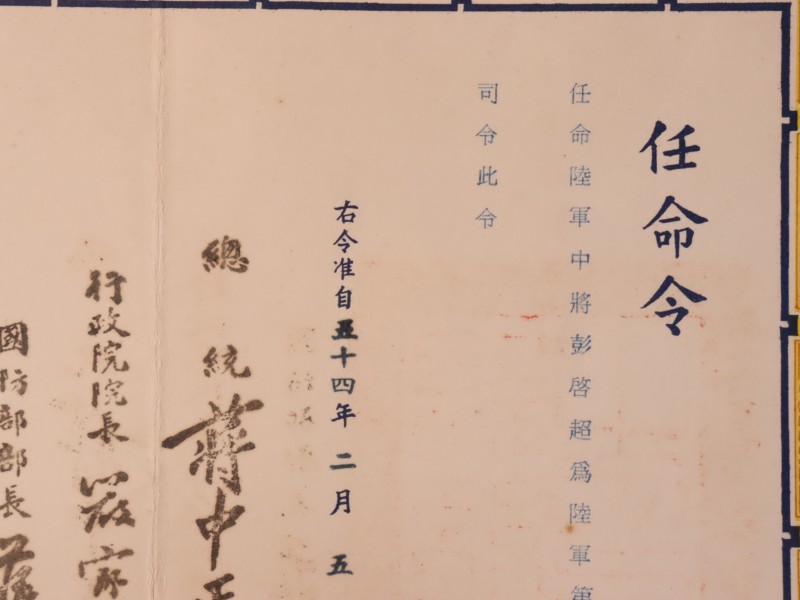 任命令
任命陸軍中將彭啓超爲陸軍第
司令此令
右令准自五十四年二月五
總統蔣中正
行政院院長嚴家
國防部部長蔣